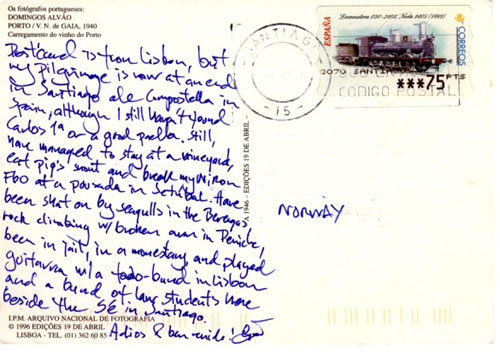 Os fotógrafos portugueses:
DOMINGOS ALVÃO
PORTO / V. N. de GAIA, 1940
Carregamento do vinho do Porto
Postcard is from Lisbon, but
my pilgrimage is now at an end
in Santiago de Compostella in
Spain, although I still haven't found
Carlos 1º or a good paella. Still,
have managed to stay at a vineyard,
eat pig's snout and break my Nikon
F60 at a pousada in Setúbal. Have
been shat on by seagulls in the
rock climbing w/ broken arm in Peniche,
been in jail, in a monestary and played
guitarra w/a bund in Lisbon
and a bund of law students here
beside the Sé in Santiago.
Adios & ben
I.P.M. ARQUIVO NACIONAL DE FOTOGRAFIA
© 1996 EDIÇÕES 19 DE ABRIL
LISBOA - TEL. (01) 362 60 85
1946 - EDIÇÕES 19 DE ABRIL -
SANTIAGO
- 15 -
CODIGO POSTAL
ESPAÑA
Locomotora 030-2107 Norte 1405 (1869)
CORREOS
0070 SANTIA
***75 PTS
NORWAY